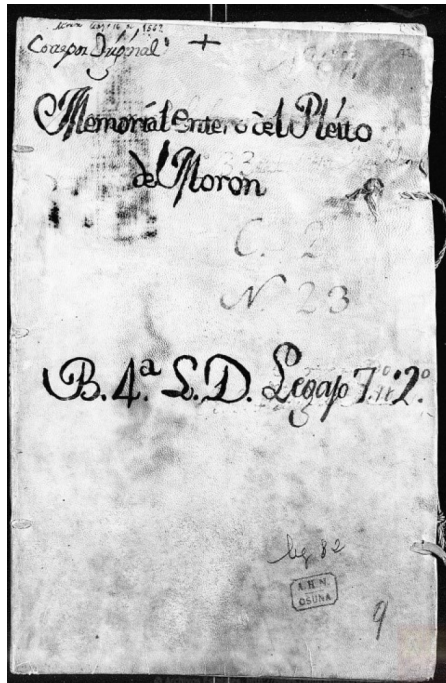 Corazon Original +
Memorial entero del Pleito
de Moron
C. 2
N. 23
B. 4.ª L. D. Legajo 7.º n.º 2.º
leg 82
A. H. N.
OSUNA
9